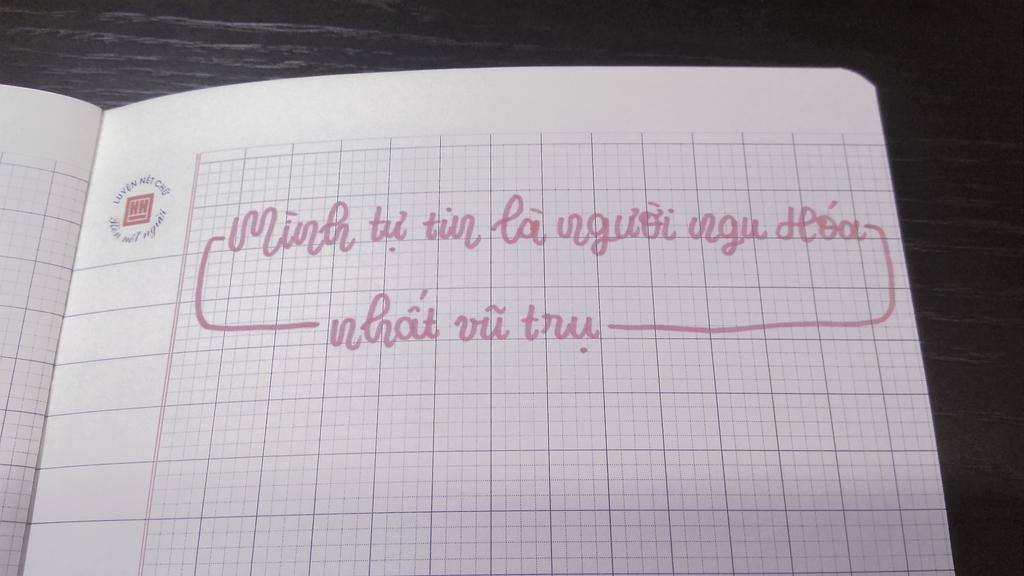 LUYỆN NÉT CHỮ
Rèn nết người
Mình tự tin là người ngu Hóa
nhất vũ trụ